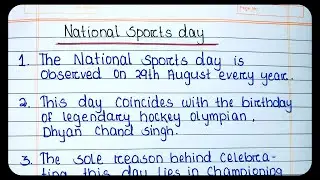 National Sports day
1. The National Sports day is
observed on 29th August every year.
2. This day coincides with the birthday
of legendary hockey olympian,
Dhyan Chand Singh.
3. The sole reason behind celebra-
ting this day lies in Championing